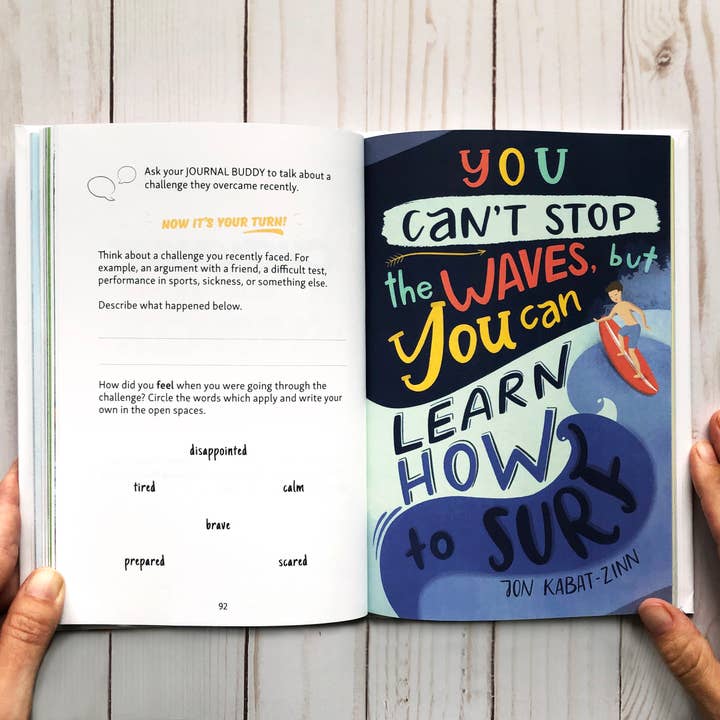 Ask your JOURNAL BUDDY to talk about a
challenge they overcame recently.
NOW IT'S YOUR TURN!
Think about a challenge you recently faced. For
example, an argument with a friend, a difficult test,
performance in sports, sickness, or something else.
Describe what happened below.
How did you feel when you were going through the
challenge? Circle the words which apply and write your
own in the open spaces.
disappointed
tired calm
brave
prepared scared
92
YOU
CAN'T STOP
the WAVES, but
YOU can
LEARN
HOW
to SURF
JON KABAT-ZINN